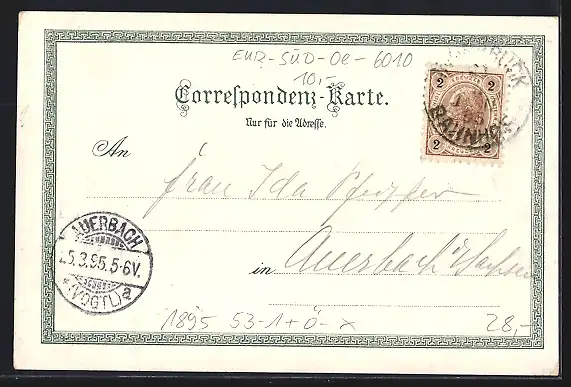 EUR-SÜD-Oe-6010
10,-
Correspondenz-Karte.
Nur für die Adresse.
2 2
BAHNHOF
2 2
An Frau Ida Pfeiffer
AUERBACH
5.3.95.5-6V.
*(VOGTL)a
in Auerbach i/Sachsen
1895 53-1+Ö-x 28,-